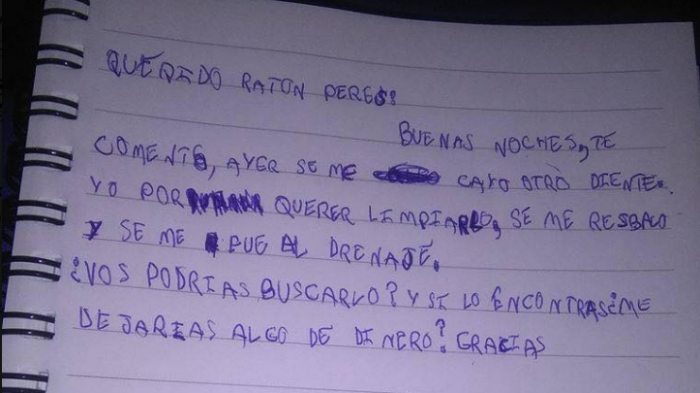 QUERIDO RATON PERES:
BUENAS NOCHES, TE
COMENTO, AYER SE ME CAYO OTRO DIENTE.
YO POR QUERER LIMPIARLO, SE ME RESBALO
Y SE ME FUE AL DRENAJE.
¿VOS PODRIAS BUSCARLO? Y SI LO ENCONTRAS ¿ME
DEJARIAS ALGO DE DINERO? GRACIAS